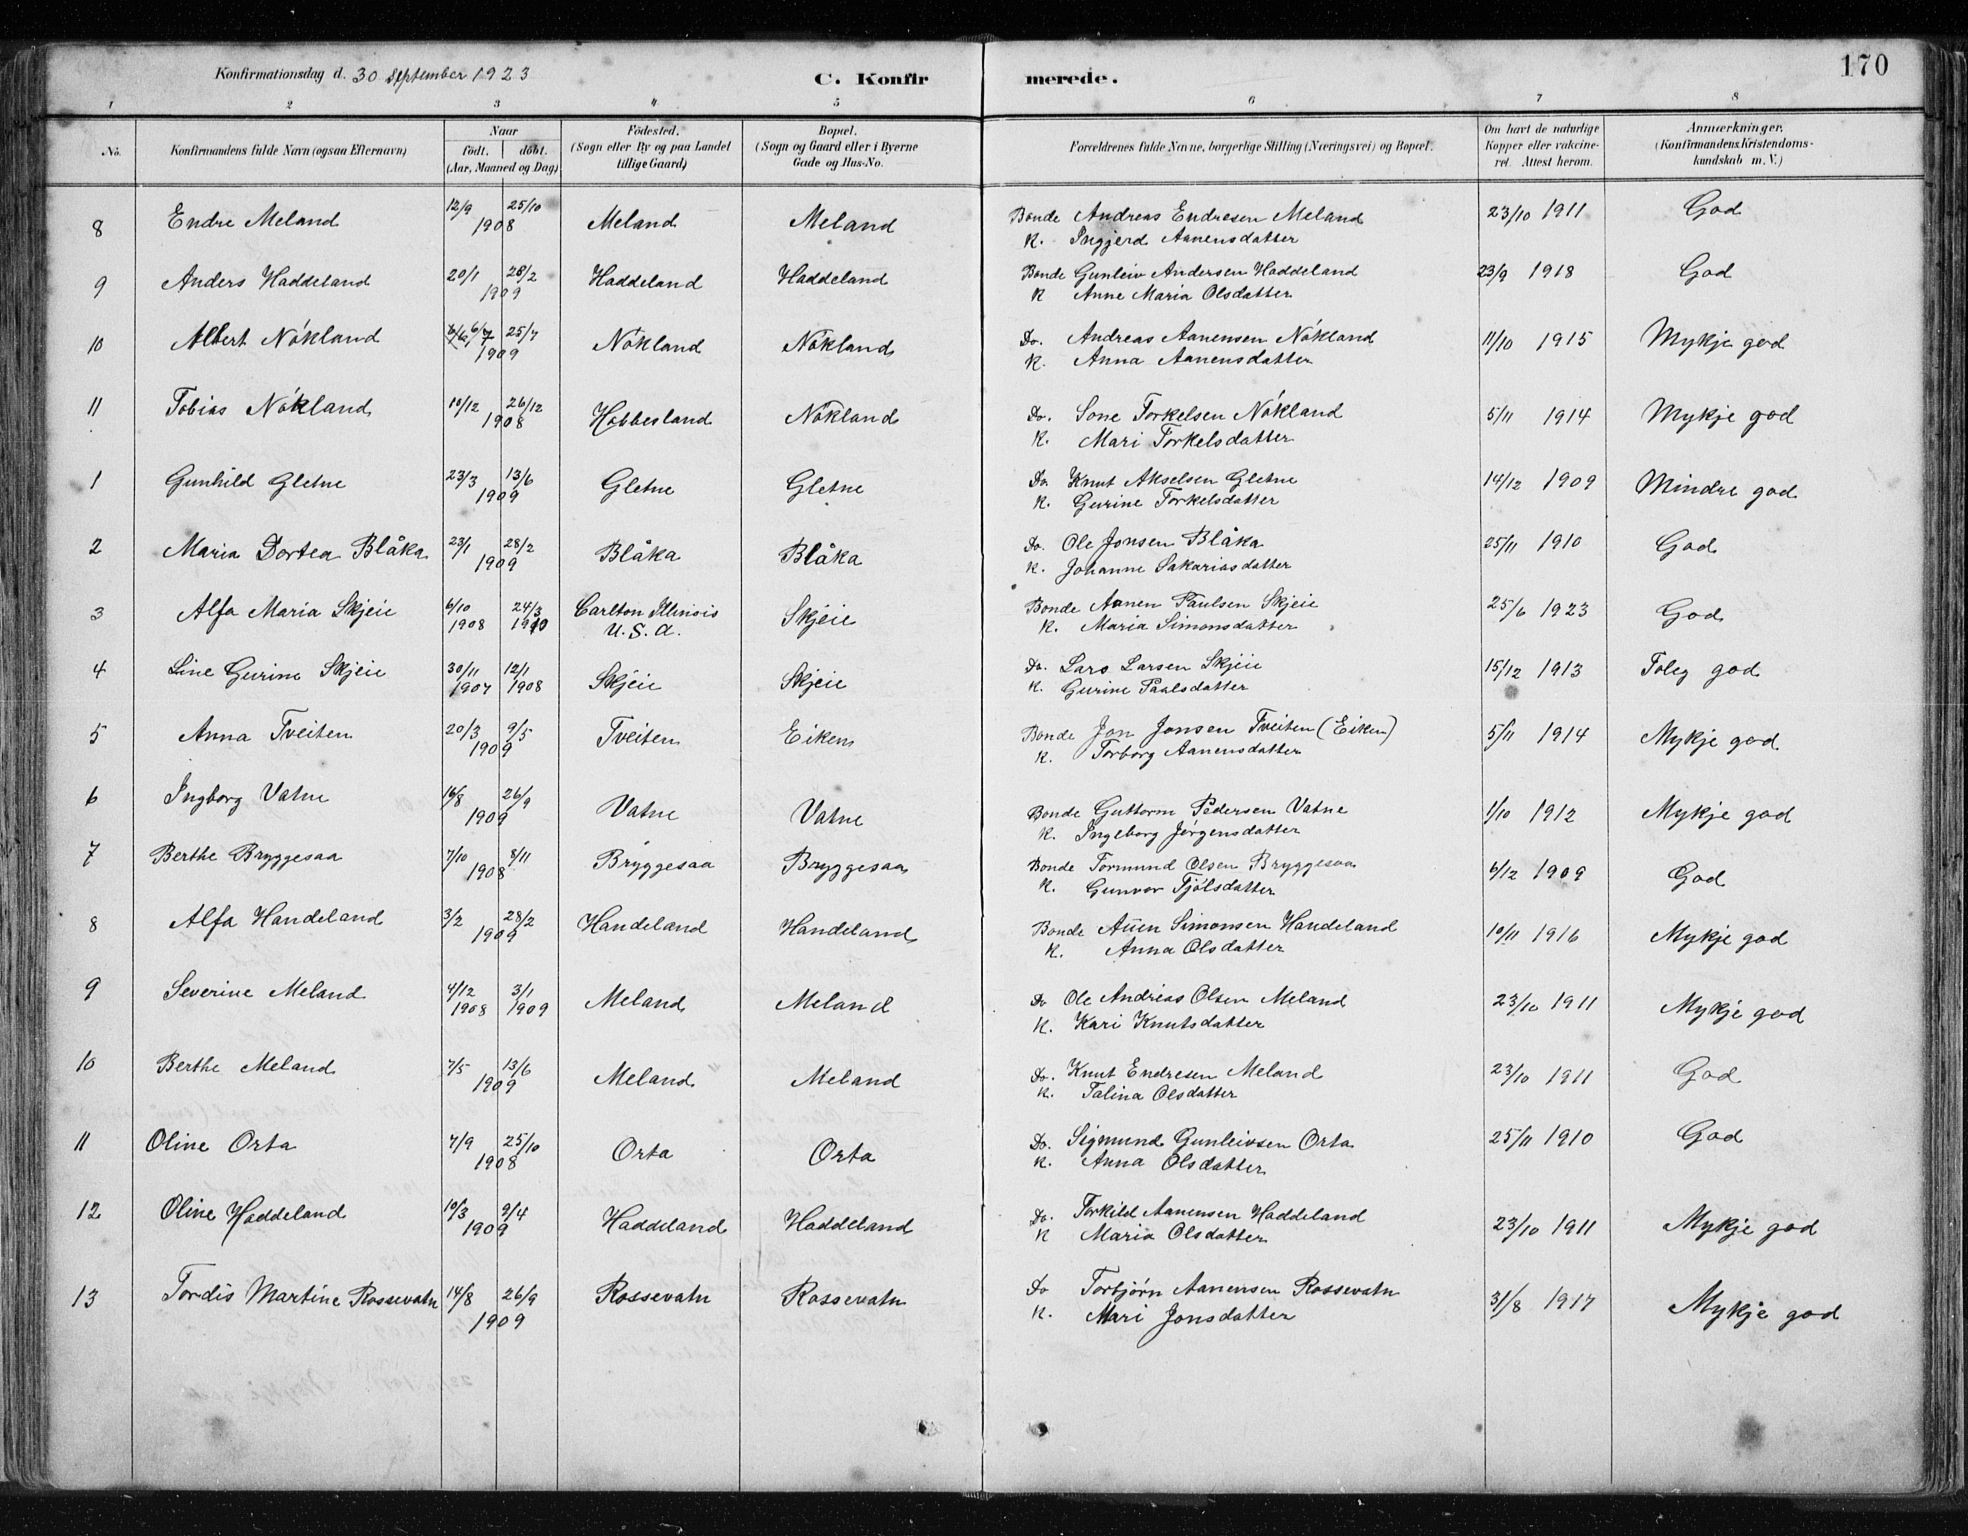 170
Konfirmationsdag d. 30 September 1923 C. Konfir merede.
1 2 3 4 5 6 7 8
No. Konfirmandens fulde Navn (ogsaa Efternavn) Naar født. døbt. (Aar, Maaned og Dag) Födested. (Sogn eller By og paa Landet tillige Gaard) Bopæl. (Sogn og Gaard eller i Byerne Gade og Hus-No. Forældrenes fulde Navne, borgerlige Stilling (Næringsvei) og Bopæl. Om havt de naturlige Kopper eller vakcineret. Attest herom. Anmærkninger. (Konfirmandens Kristendomskundskab m. V.)
8 Endre Meland 12/9 25/10 1908 Meland Meland Bonde Andreas Endresen Meland 23/10 1911 God
K. Ingjerd Aanensdatter
9 Anders Haddeland 20/1 28/2 1909 Haddeland Haddeland Bonde Gunleiv Andersen Haddeland 23/9 1918 God
K Anne Maria Olsdatter
10 Albert Nökland 6/7 25/7 1909 Nökland Nökland Do. Andreas Aanensen Nökland 11/10 1915 Mykje god
K. Anna Aanensdatter
11 Tobias Nökland 10/12 26/12 1908 Hobbesland Nökland Do. Sone Torkelsen Nökland 5/11 1914 Mykje god
K. Mari Torkelsdatter
1 Gunhild Gletne 23/3 13/6 1909 Gletne Gletne Do. Knut Akselsen Gletne 14/12 1909 Mindre god
K. Gurine Torkelsdatter
2 Maria Dortea Blåka 23/1 28/2 1909 Blåka Blåka Do. Ole Jonsen Blåka 25/11 1910 God
K. Johanne Sakariasdatter
3 Alfa Maria Skjeie 6/10 1908 24/3 1910 Carlton Illinois U.S.A. Skjeie Bonde Aanen Paulsen Skjeie 25/6 1923 God
K. Maria Simonsdatter
4 Line Gurine Skjeie 30/11 1907 12/1 1908 Skjeie Skjeie Do. Lars Larsen Skjeie 15/12 1913 Toleg god
K. Gurine Paalsdatter
5 Anna Tveiten 20/3 9/5 1909 Tveiten Eiken Bonde Jon Jonsen Tveiten (Eiken) 5/11 1914 Mykje god
K. Torborg Aanensdatter
6 Ingborg Vatne 16/8 26/9 1909 Vatne Vatne Bonde Guttorm Pedersen Vatne 1/10 1912 Mykje god
K. Ingeborg Jørgensdatter
7 Berthe Bryggesaa 7/10 8/11 1908 Bryggesaa Bryggesaa Bonde Tormund Olsen Bryggesaa 6/12 1909 God
K. Gunvor Tjölsdatter
8 Alfa Handeland 3/2 28/2 1909 Handeland Handeland Bonde Simonsen Handeland 10/11 1916 Mykje god
K. Anna Olsdatter
9 Severine Meland 4/12 1908 3/1 1909 Meland Meland Do Ole Andreas Olsen Meland 23/10 1911 Mykje god
K. Kari Knutsdatter
10 Berthe Meland 7/5 13/6 1909 Meland Meland Do. Knut Endresen Meland 23/10 1911 God
K. Talina Olsdatter
11 Oline Orta 7/9 25/10 1908 Orta Orta Do. Sigmund Gunleivsen Orta 25/11 1910 God
K. Anna Olsdatter
12 Oline Haddeland 10/3 9/4 1909 Haddeland Haddeland Do. Torkild Aanensen Haddeland 23/10 1911 Mykje god
K Maria Olsdatter
13 Tordis Martine Rossevatn 14/8 26/9 1909 Rossevatn Rossevatn Do Torbjørn Aanensen Rossevatn 31/8 1917 Mykje god
K. Mari Jonsdatter